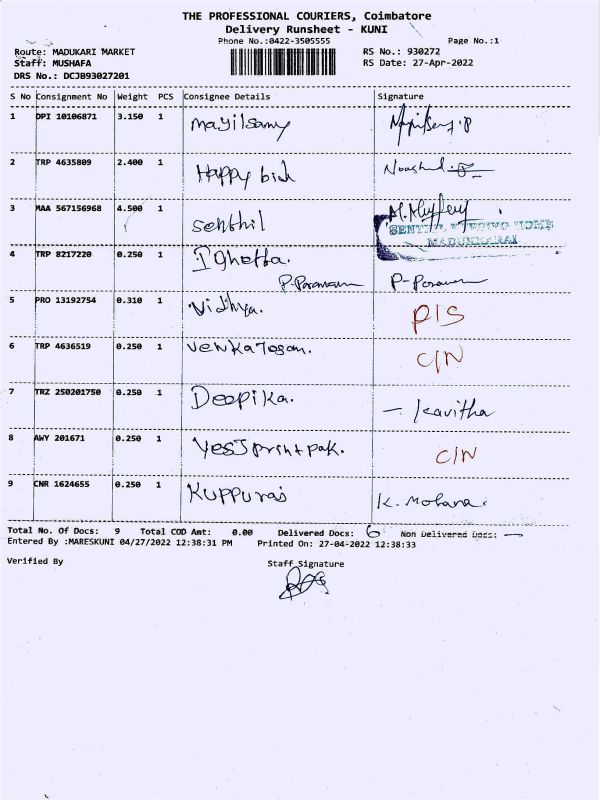 THE PROFESSIONAL COURIERS, Coimbatore
Delivery Runsheet - KUNI
Phone No.:0422-3505555 Page No.:1
Route: MADUKARI MARKET RS No.: 930272
Staff: MUSHAFA RS Date: 27-Apr-2022
DRS No.: DCJB93027201
S No Consignment No Weight PCS Consignee Details Signature
1 DPI 10106871 3.150 1 mayilsamy
2 TRP 4635809 2.400 1 Happy bird
3 MAA 567156968 4.500 1 senthil
MADUKKARAI
4 TRP 8217220 0.250 1
5 PRO 13192754 0.310 1 Vidhya. P/S
6 TRP 4636519 0.250 1 C/N
7 TRZ 250201750 0.250 1 Deepika. - Kavitha
8 AWY 201671 0.250 1 C/N
9 CNR 1624655 0.250 1 Kuppuraj K. Mohana.
Total No. Of Docs: 9 Total COD Amt: 0.00 Delivered Docs: 6 Non Delivered Docs: —
Entered By :MARESKUNI 04/27/2022 12:38:31 PM Printed On: 27-04-2022 12:38:33
Verified By Staff Signature